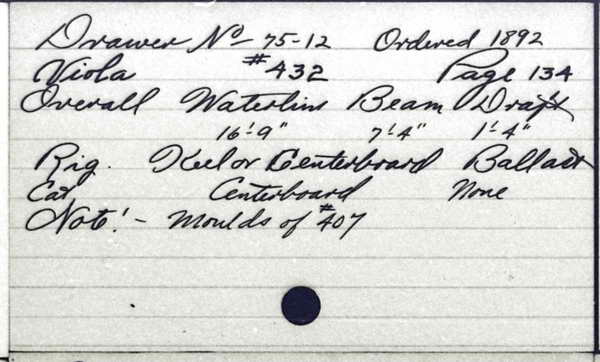 Drawer No 75-12 Ordered 1892
Viola #432 Page 134
Overall Waterline Beam Draft
16'-9" 7'-4" 1'-4"
Rig. Keel or Centerboard Ballast
Cat Centerboard None
Note! - Moulds of #407